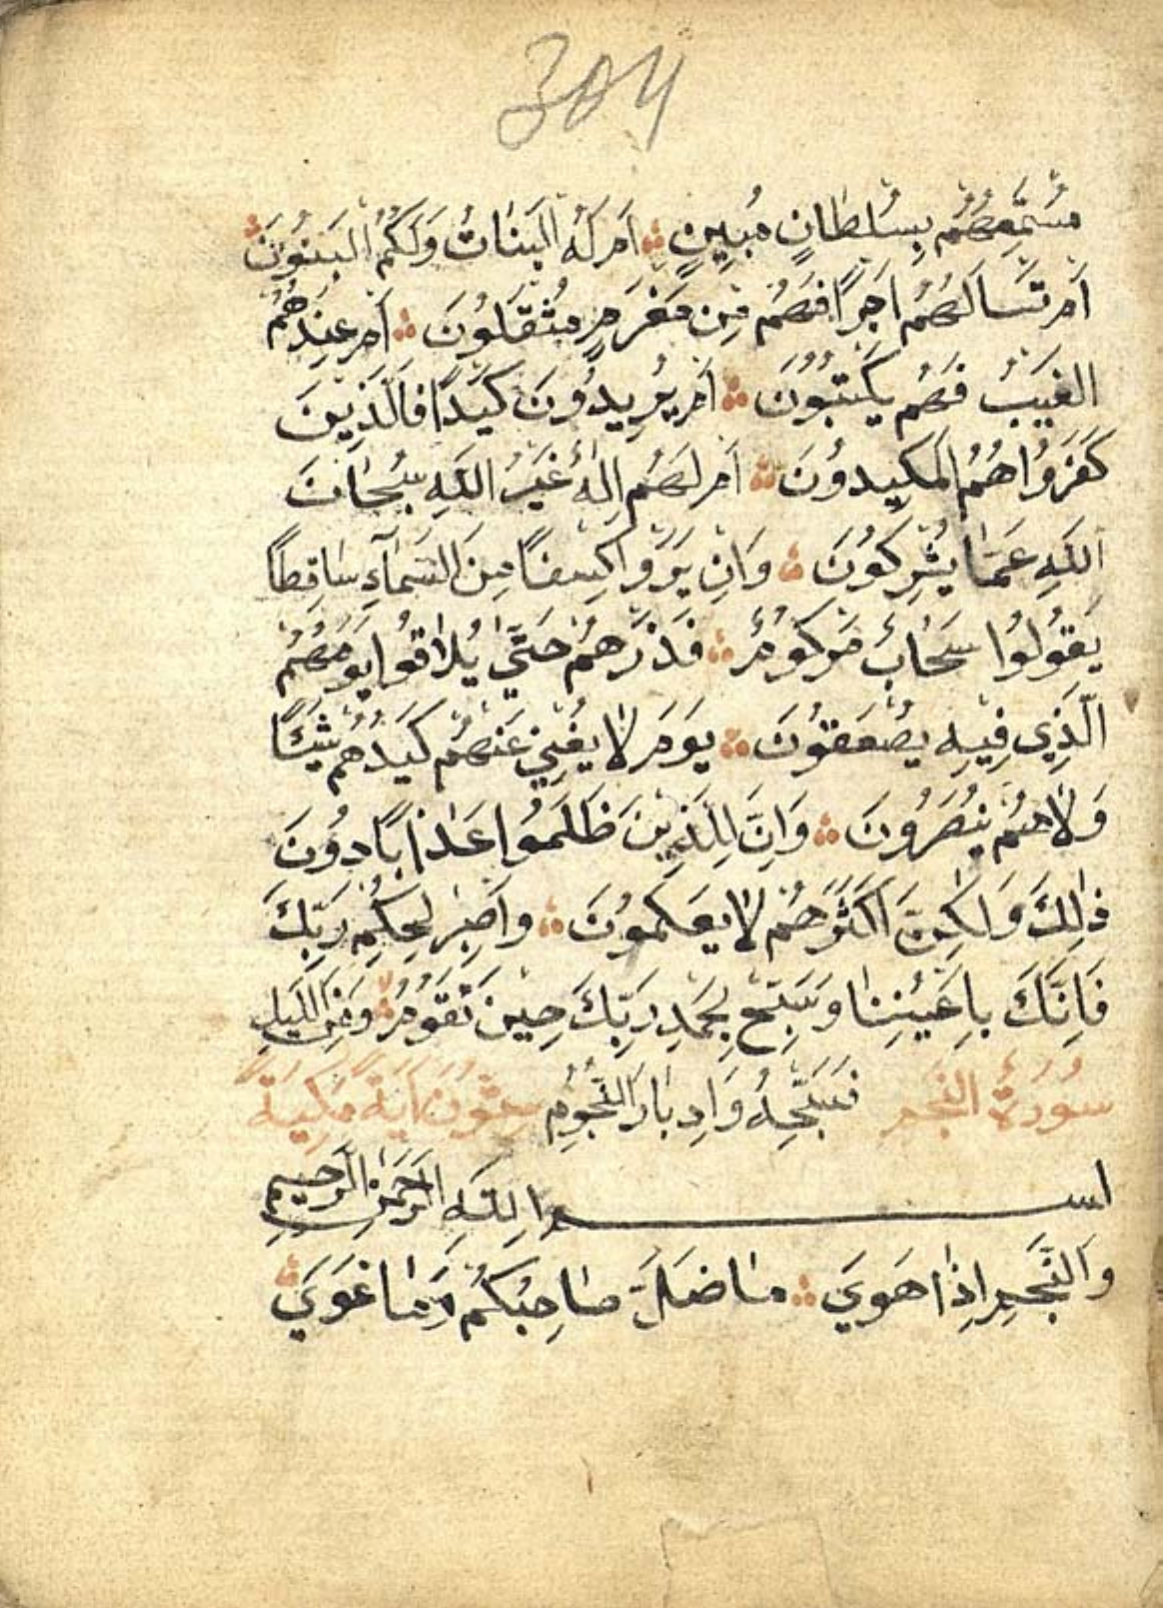 304
مُسْتَمِعُهُمْ بِسُلْطَانٍ مُبِينٍ ∴ اَمْ لَهُ الْبَنَاتُ وَلَكُمُ الْبَنُونَ ∴
اَمْ تَسْاَلُهُمْ اَجْرًا فَهُمْ مِنْ مَغْرَمٍ مُثْقَلُونَ ∴ اَمْ عِنْدَهُمُ
الْغَيْبُ فَهُمْ يَكْتُبُونَ ∴ اَمْ يُرِيدُونَ كَيْدًا فَالَّذِينَ
كَفَرُوا هُمُ الْمَكِيدُونَ ∴ اَمْ لَهُمْ اِلٰهٌ غَيْرُ اللَّهِ سُبْحَانَ
اللَّهِ عَمَّا يُشْرِكُونَ ∴ وَاِنْ يَرَوْا كِسْفًا مِنَ السَّمَآءِ سَاقِطًا
يَقُولُوا سَحَابٌ مَرْكُومٌ ∴ فَذَرْهُمْ حَتَّي يُلَاقُوا يَوْمَهُمُ
الَّذِي فِيهِ يُصْعَقُونَ ∴ يَوْمَ لَا يُغْنِي عَنْهُمْ كَيْدُهُمْ شَيْئًا
وَلَا هُمْ يُنْصَرُونَ ∴ وَاِنَّ لِلَّذِينَ ظَلَمُوا عَذَابًا دُونَ
ذٰلِكَ وَلٰكِنَّ اَكْثَرَهُمْ لَا يَعْلَمُونَ ∴ وَاصْبِرْ لِحُكْمِ رَبِّكَ
فَاِنَّكَ بِاَعْيُنِنَا وَسَبِّحْ بِحَمْدِ رَبِّكَ حِينَ تَقُومُ ∴ وَمِنَ اللَّيْلِ
سُورَةُ النَّجْمِ فَسَبِّحْهُ وَاِدْبَارَ النُّجُومِ ستون اٰية مَكِّيَّة
بسم اللَّهِ الرَّحْمٰنِ الرَّحِيمِ
وَالنَّجْمِ اِذَا هَوَي ∴ مَا ضَلَّ صَاحِبُكُمْ وَمَا غَوَي ∴